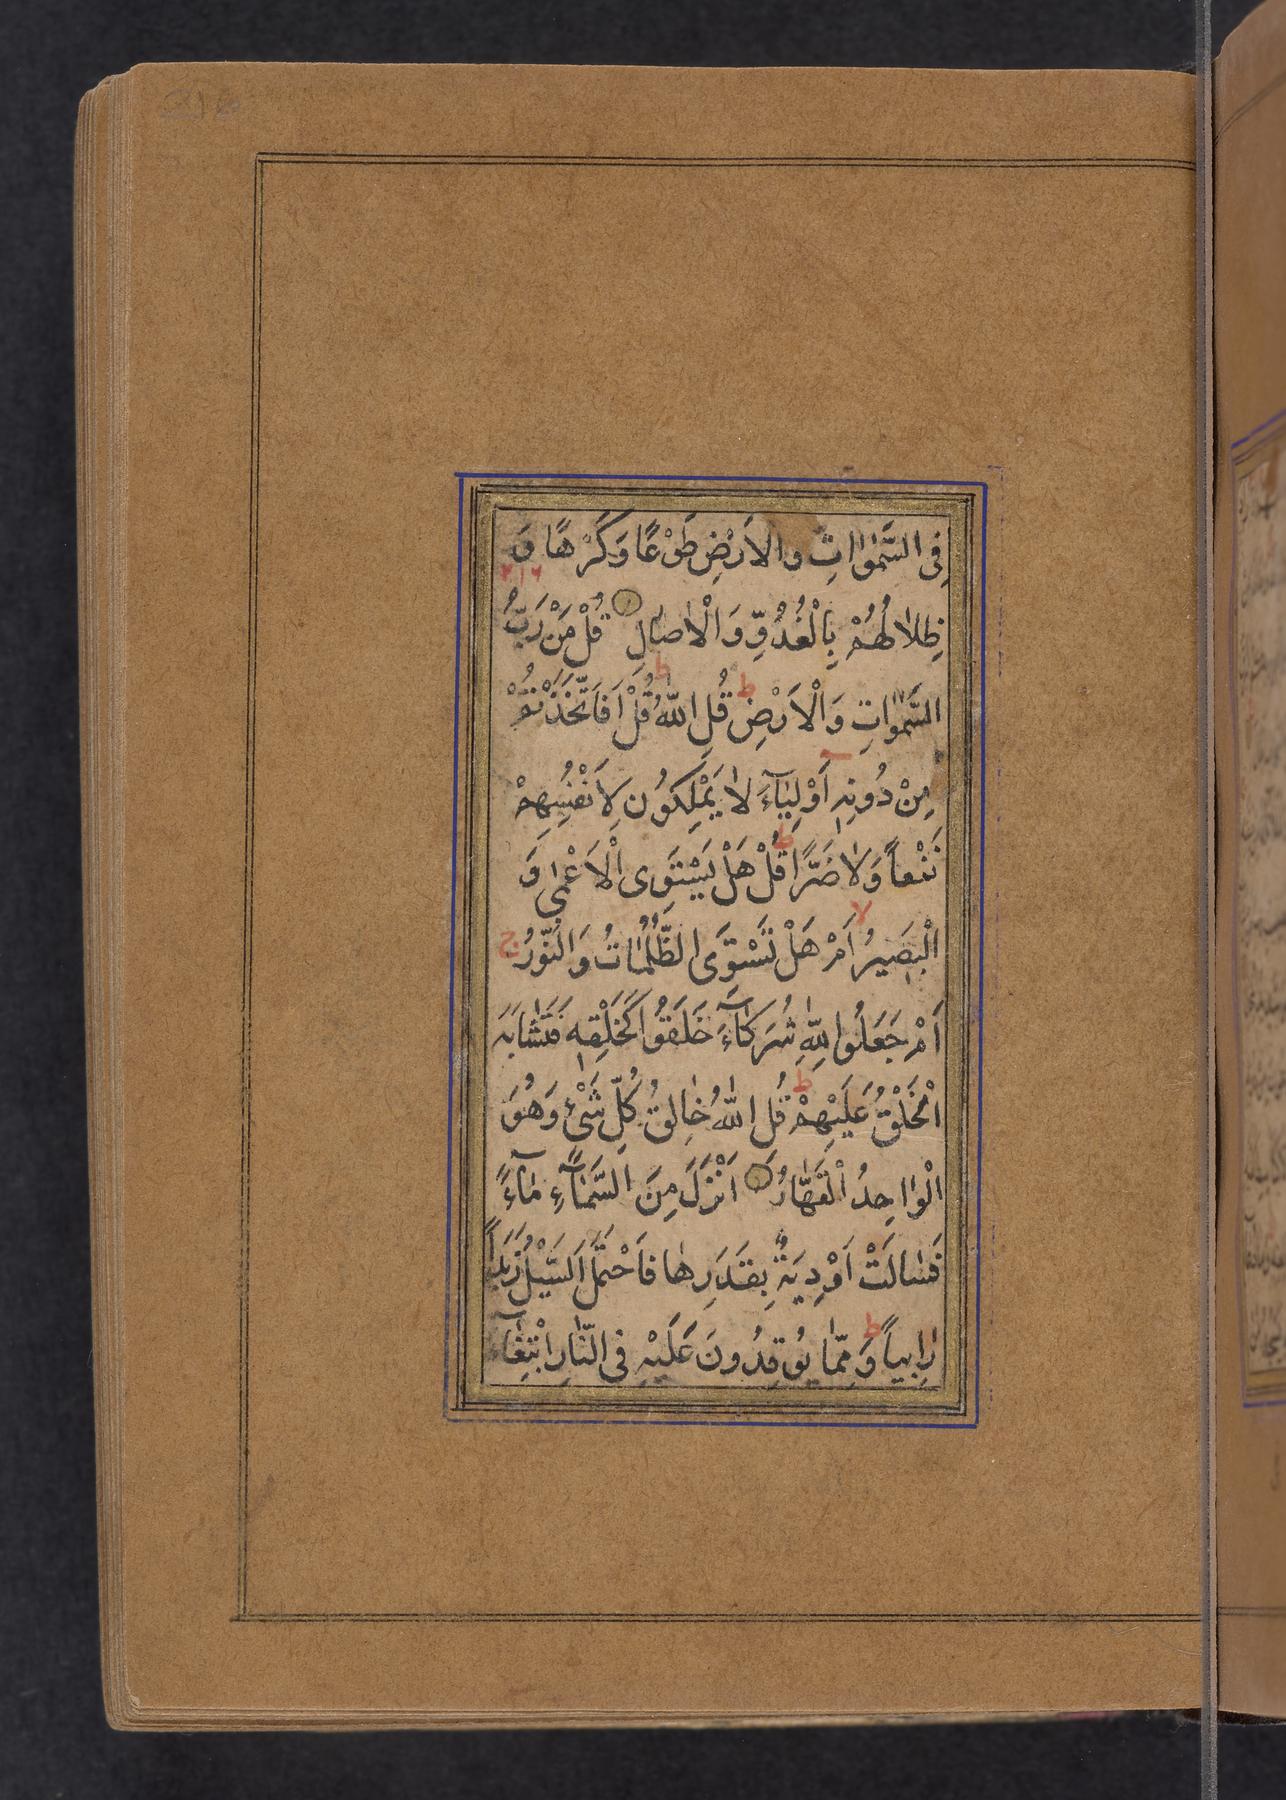 فِى السَّمٰوٰاتِ والاَرْضِ طَوْعًا وَكَرْهًا وَ
ظِلاٰلُهُمْ بِالْغُدُوِّ وَالْاٰصٰالِ قُلْ مَنْ رَبُّ
السَّمٰوٰاتِ وَالْاَرْضِ ط قُلِ اللّٰهُ ط قُلْ اَفَاتَّخَذْتُمْ
مِنْ دُونِهٖ اَوْلِيٰآءَ لاٰ يَمْلِكُونَ لِاَنْفُسِهِمْ
نَفْعاً وَلاٰ ضَرًّا ط قُلْ هَلْ يَسْتَوِى الْاَعْمٰى وَ
الْبَصِيرُ لا اَمْ هَلْ تَسْتَوِى الظُّلُمٰاتُ وَالنُّورُ ج
اَمْ جَعَلُوا لِلّٰهِ شُرَكٰآءَ خَلَقُوا كَخَلْقِهٖ فَتَشٰابَهَ
الْخَلْقُ عَلَيْهِمْ ط قُلِ اللّٰهُ خٰالِقُ كُلِّ شَىْءٍ وَهُوَ
الْوٰاحِدُ الْقَهّٰارُ اَنْزَلَ مِنَ السَّمٰآءِ مٰآءً
فَسٰالَتْ اَوْدِيَةٌ بِقَدَرِهٰا فَاحْتَمَلَ السَّيْلُ زَبَداً
رٰابِياً ط وَمِمّٰا يُوقِدُونَ عَلَيْهِ فِى النّٰارِ ابْتِغٰآءَ